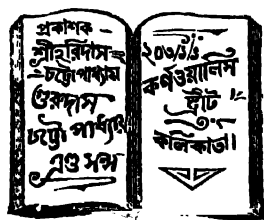 প্রকাশক–
শ্রীহরিদাস–
চট্টোপাধ্যায়
গুরুদাস
চট্টোপাধ্যায়
এণ্ড সন্স
২০৩/১/১
কর্ণওয়ালিস
ষ্ট্রীট
কলিকাতা।